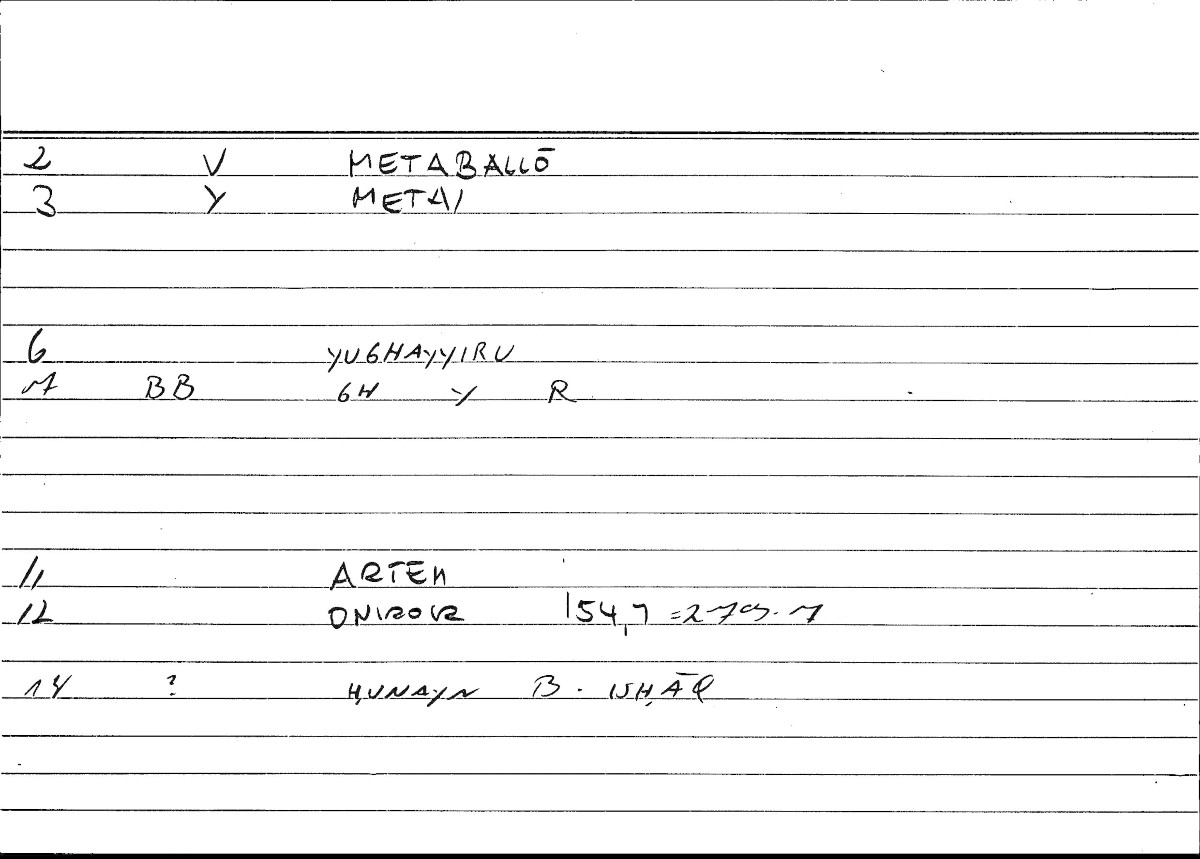 2 V METABALLŌ
3 Y METAI
6 YUGHAYYIRU
7 BB GH Y R
11 ARTEM
12 ONIROCR 154,7 = 279.7
14 ? ḤUNAYN B. ISḤĀQ